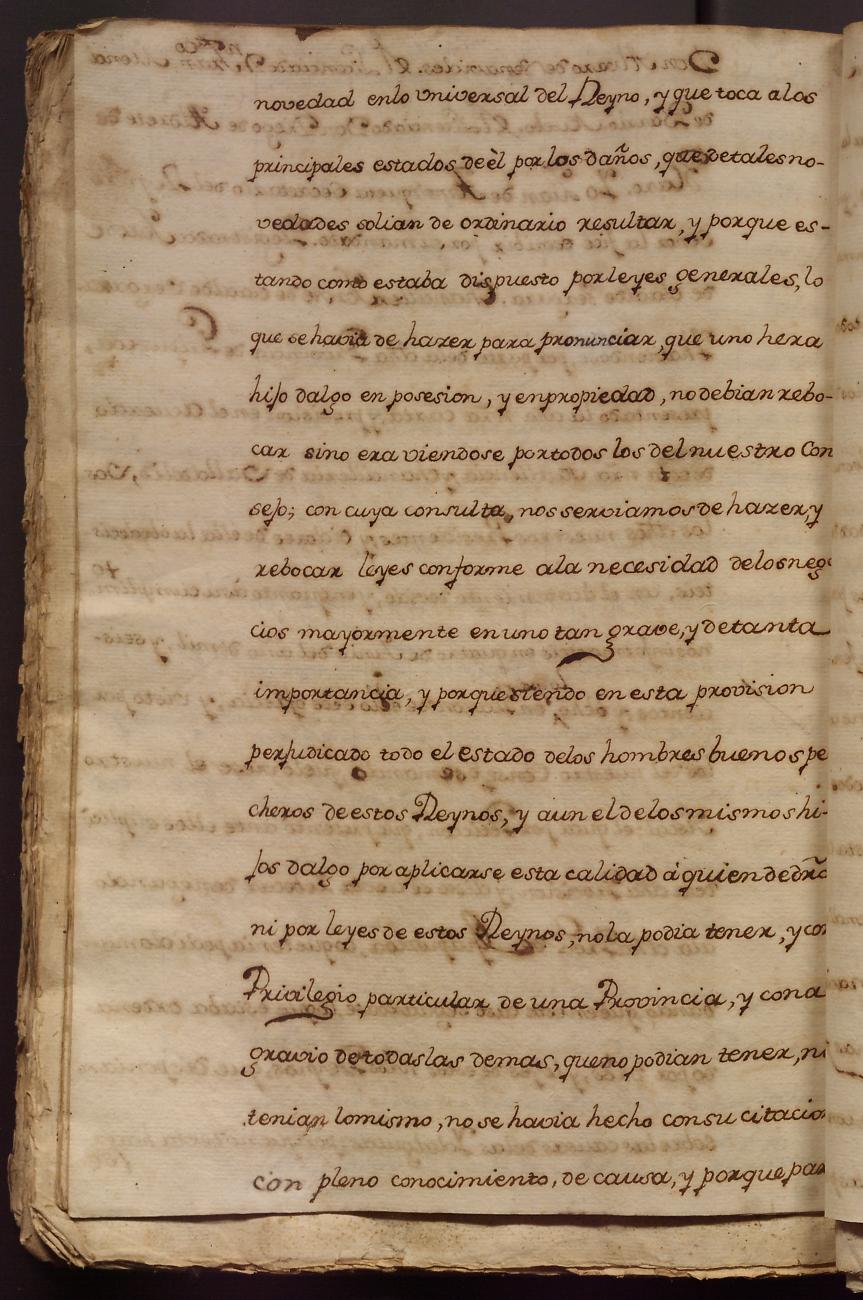 novedad enlo universal del Reyno, y que toca a los
principales estados de èl por los daños, que de tales no-
vedades solian de ordinario resultar, y porque es-
tando como estaba dispuesto por leyes generales, lo
que se havia de hazer para pronunciar, que uno hera
hijo dalgo en posesion, y en propiedad, no debian rebo-
car sino era viendose por todos los del nuestro Con
sejo; con cuya consulta, nos serviamos de hazer, y
rebocar leyes conforme a la necesidad de los nego
cios mayormente en uno tan grave, y de tanta
importancia, y porque siendo en esta provision
perjudicado todo el estado de los hombres buenos pe
cheros de estos Reynos, y aun el de los mismos hi-
jos dalgo por aplicarse esta calidad á quien de dr̃o
ni por leyes de estos Reynos, no la podia tener, y con
Privilegio particular de una Provincia, y con a
gravio de todas las demas, que no podian tener, ni
tenian lo mismo, no se havia hecho con su citacion
con pleno conocimiento, de causa, y porque par